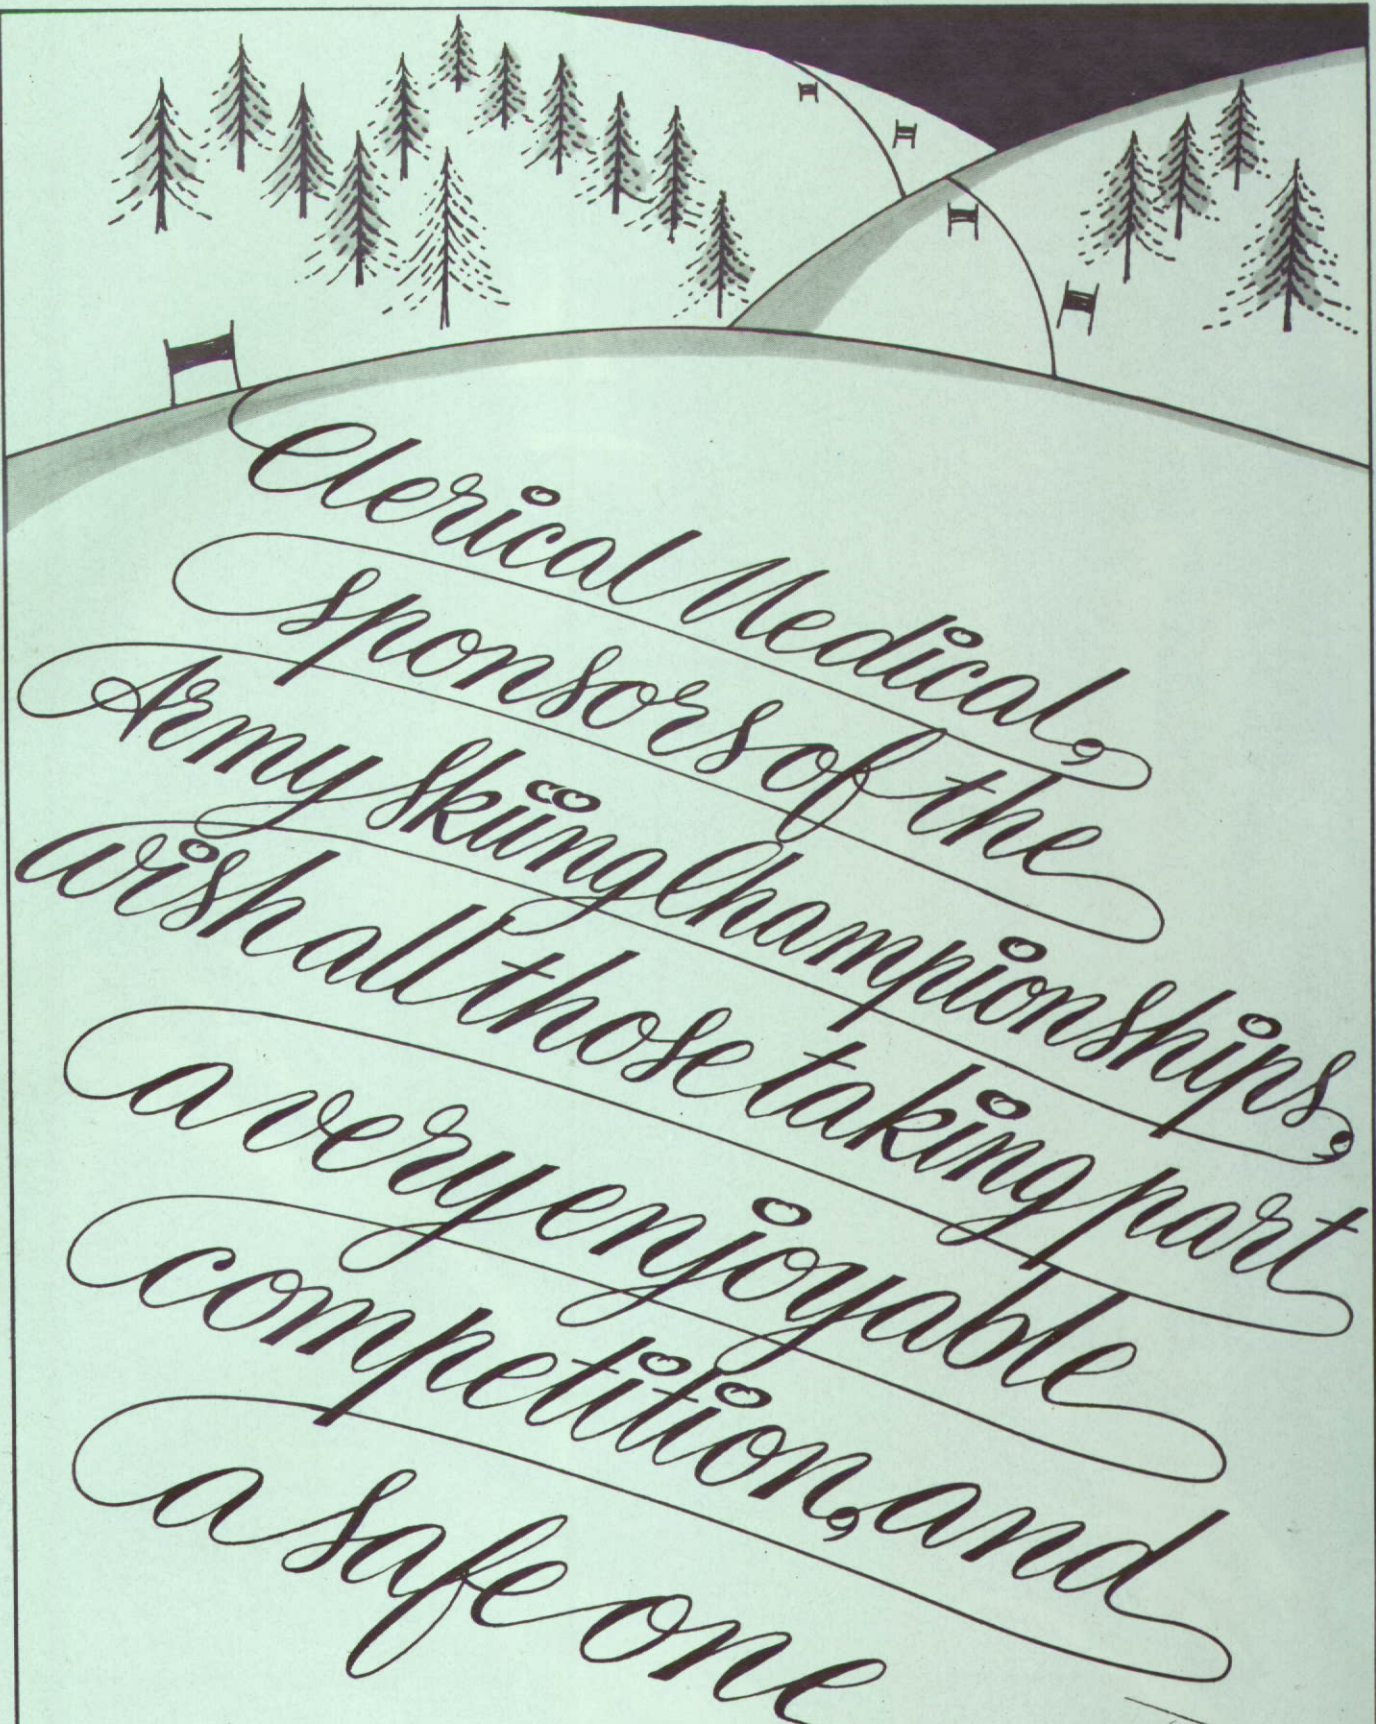 Clerical Medical,
sponsors of the
Army Skiing Championships,
wish all those taking part
a very enjoyable
competition, and
a safe one